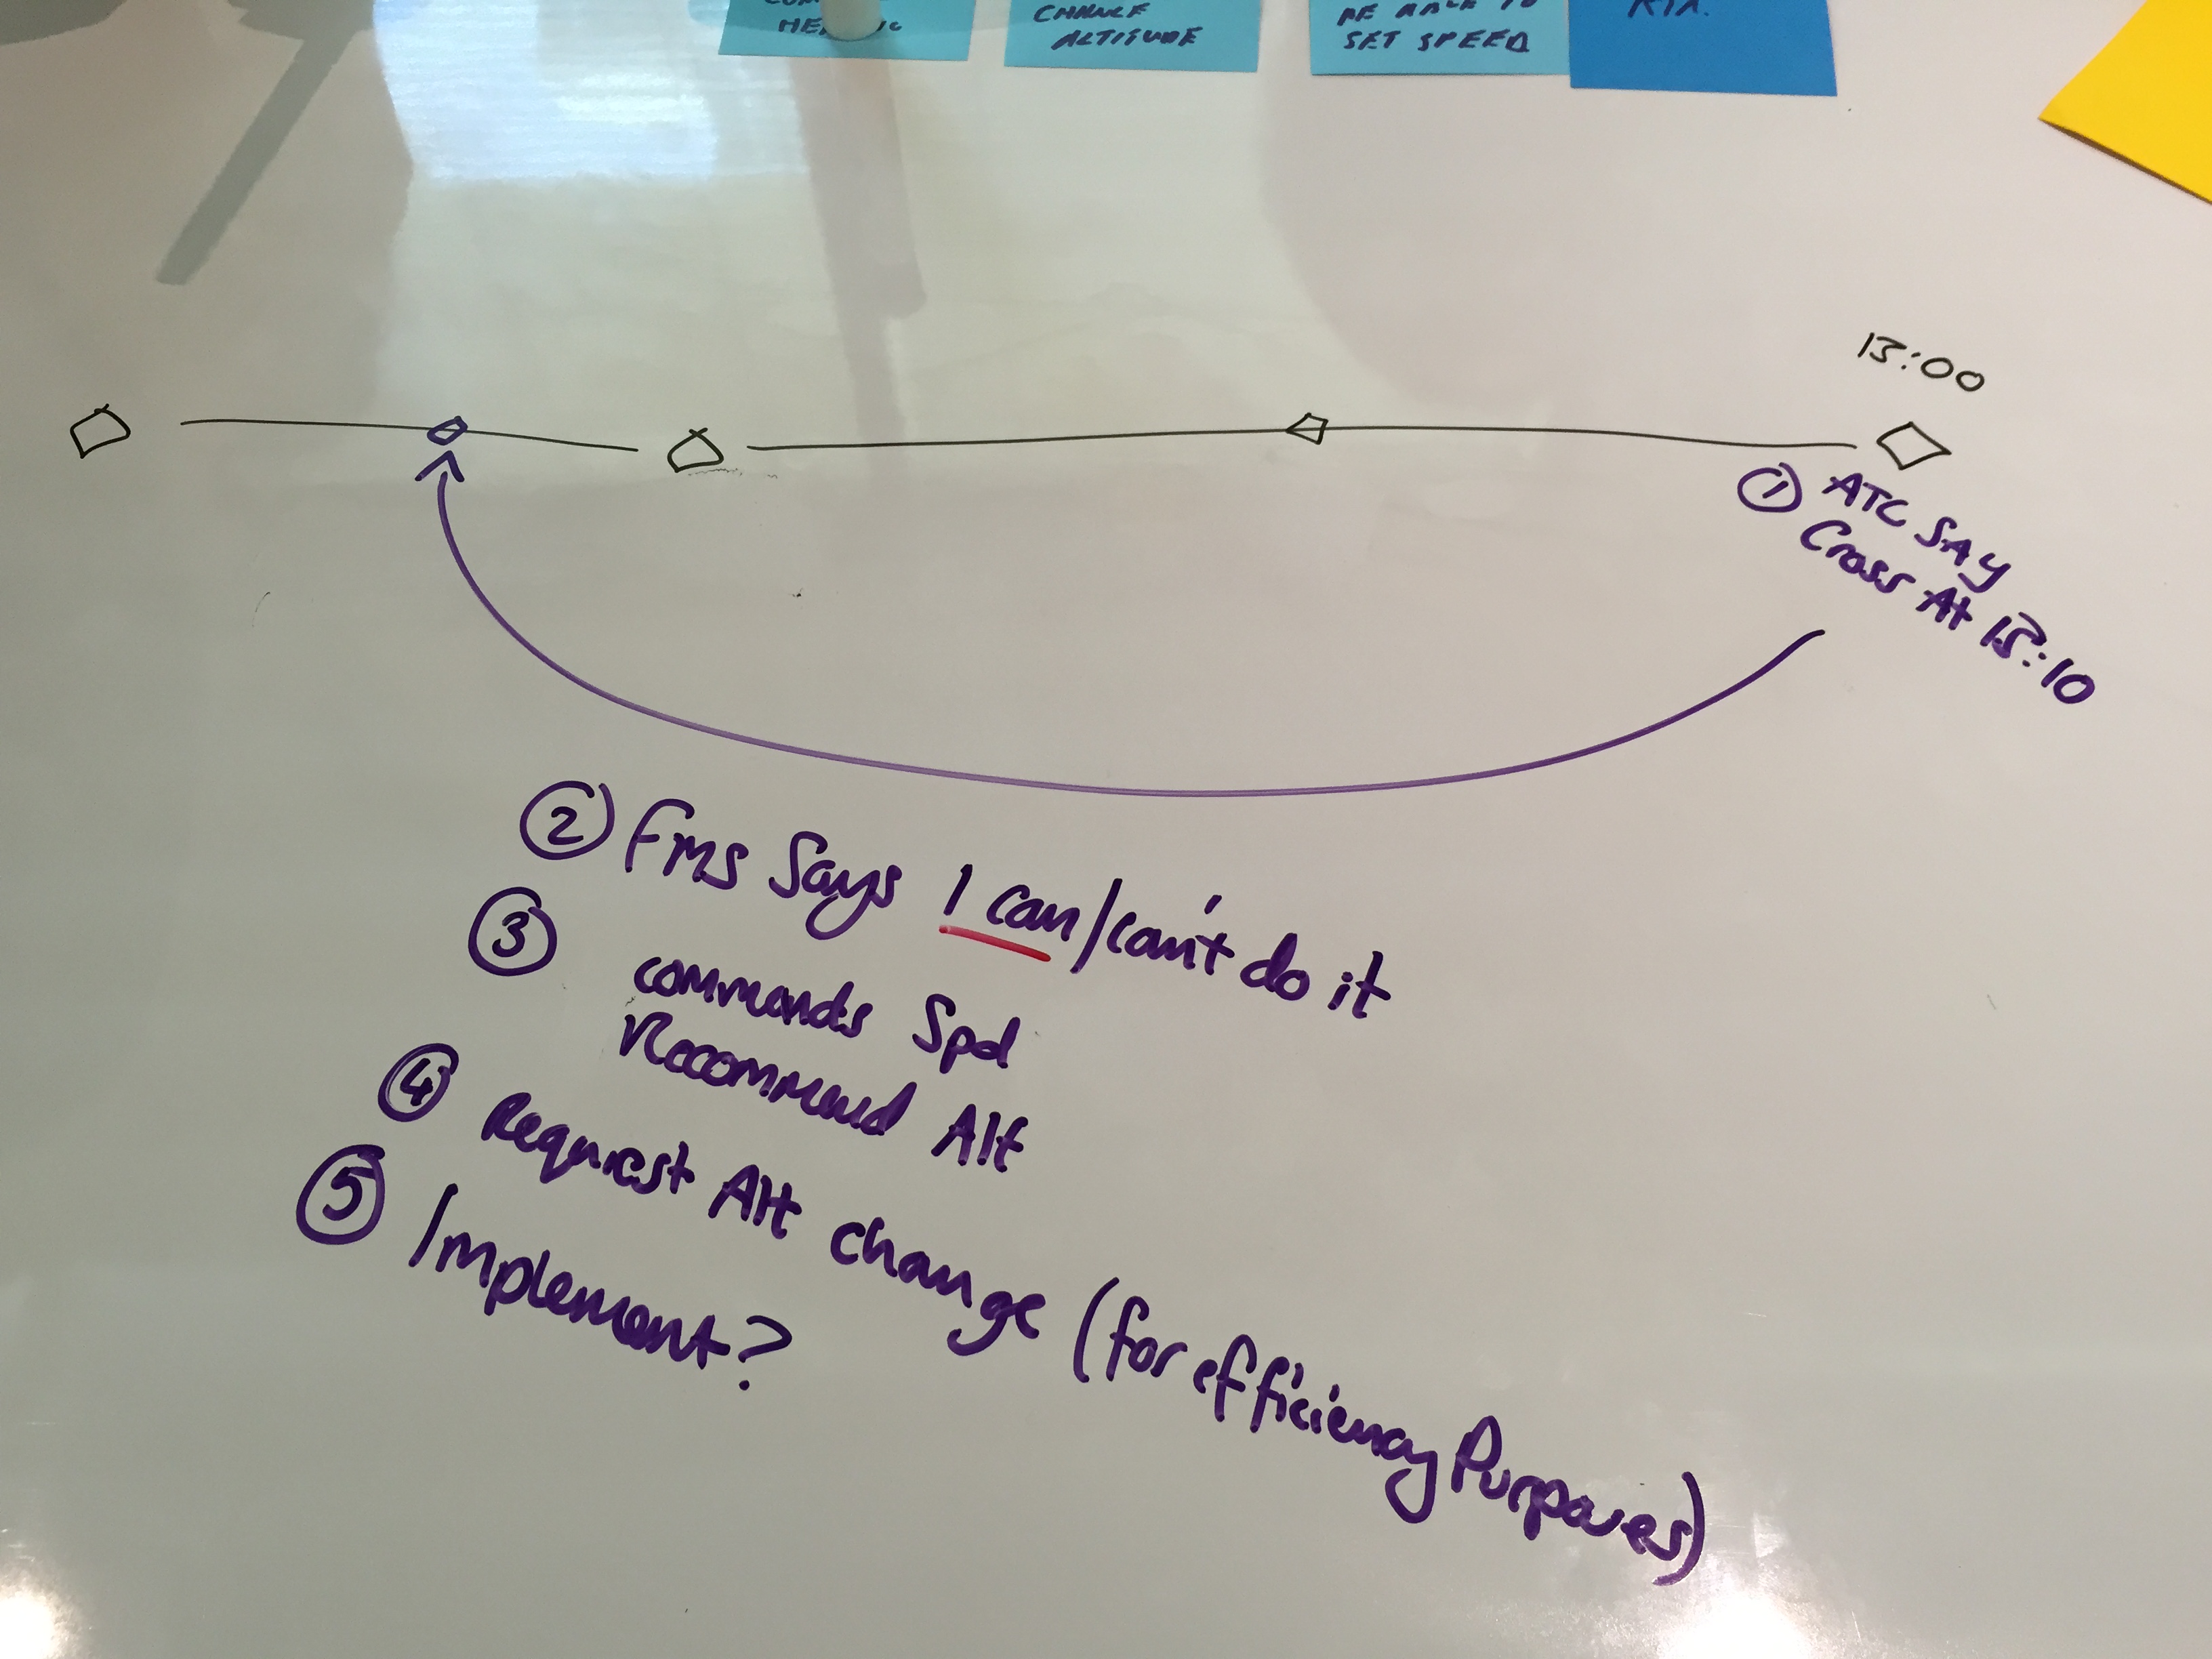 CHANGE
ALTITUDE
BE ABLE TO
SET SPEED
RTA.
13:00
① ATC SAY
Cross At 13:10
② Fms Says I can/can't do it
③ commands Spd
Recommend Alt
④ Request Alt change (for efficiency Purposes)
⑤ Implement?